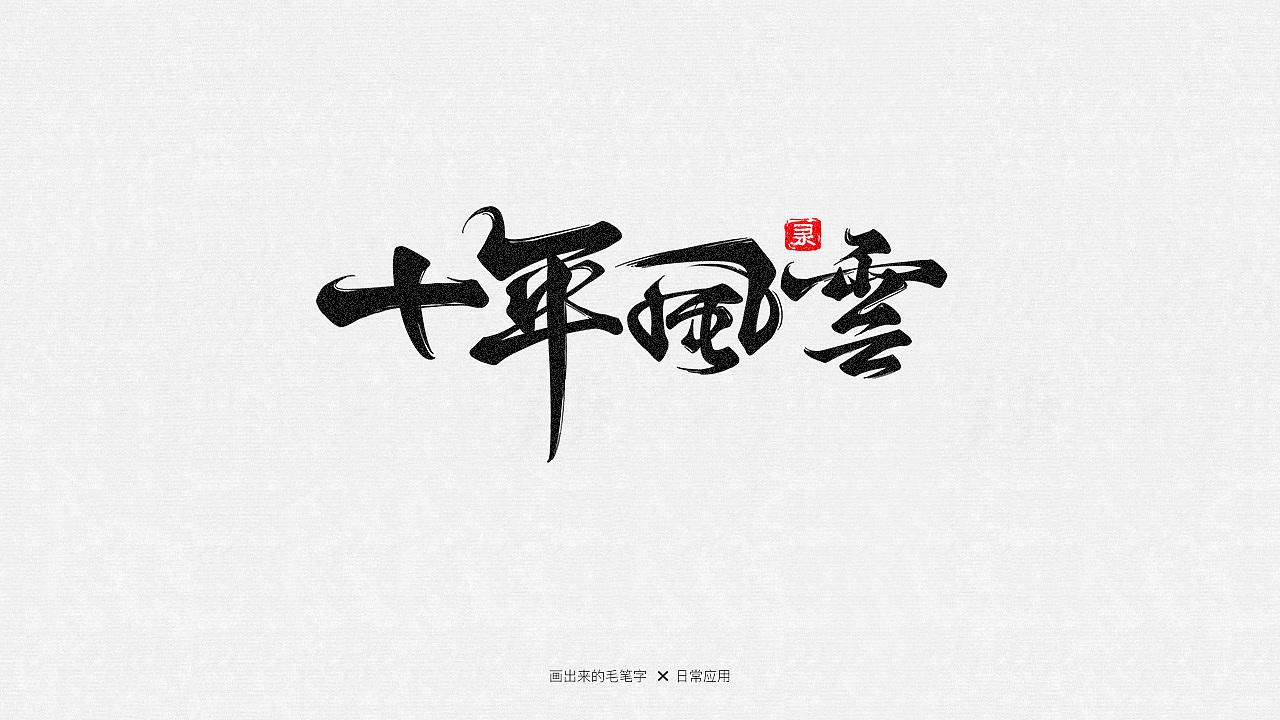 十年風雲
泉
画出来的毛笔字 × 日常应用